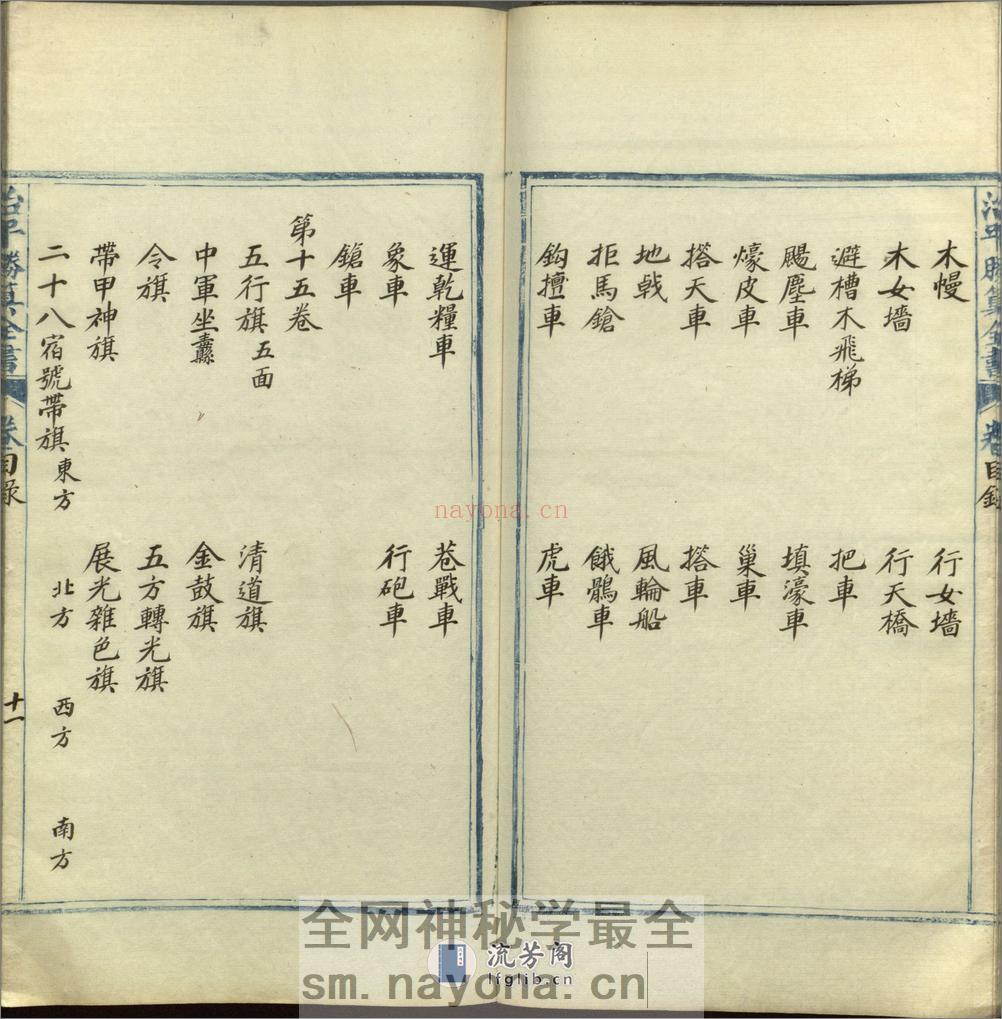 木幔 行女墻
木女墻 行天橋
避槽木飛梯 把車
颺塵車 填濠車
㷫皮車 巢車
搭天車 搭車
地戟 風輪船
拒馬鎗 餓鶻車
鈎擅車 虎車
卷目錄
運乾糧車 巷戰車
象車 行砲車
鎗車
第十五卷
五行旗五面 清道旗
中軍坐纛 金鼓旗
令旗 五方轉光旗
帶甲神旗 展光雜色旗
二十八宿號帶旗東方 北方 西方 南方
勝算全書 卷目錄 十一
nayona.cn
全网神秘学最全
流芳阁
lfglib.cn
sm.nayona.cn